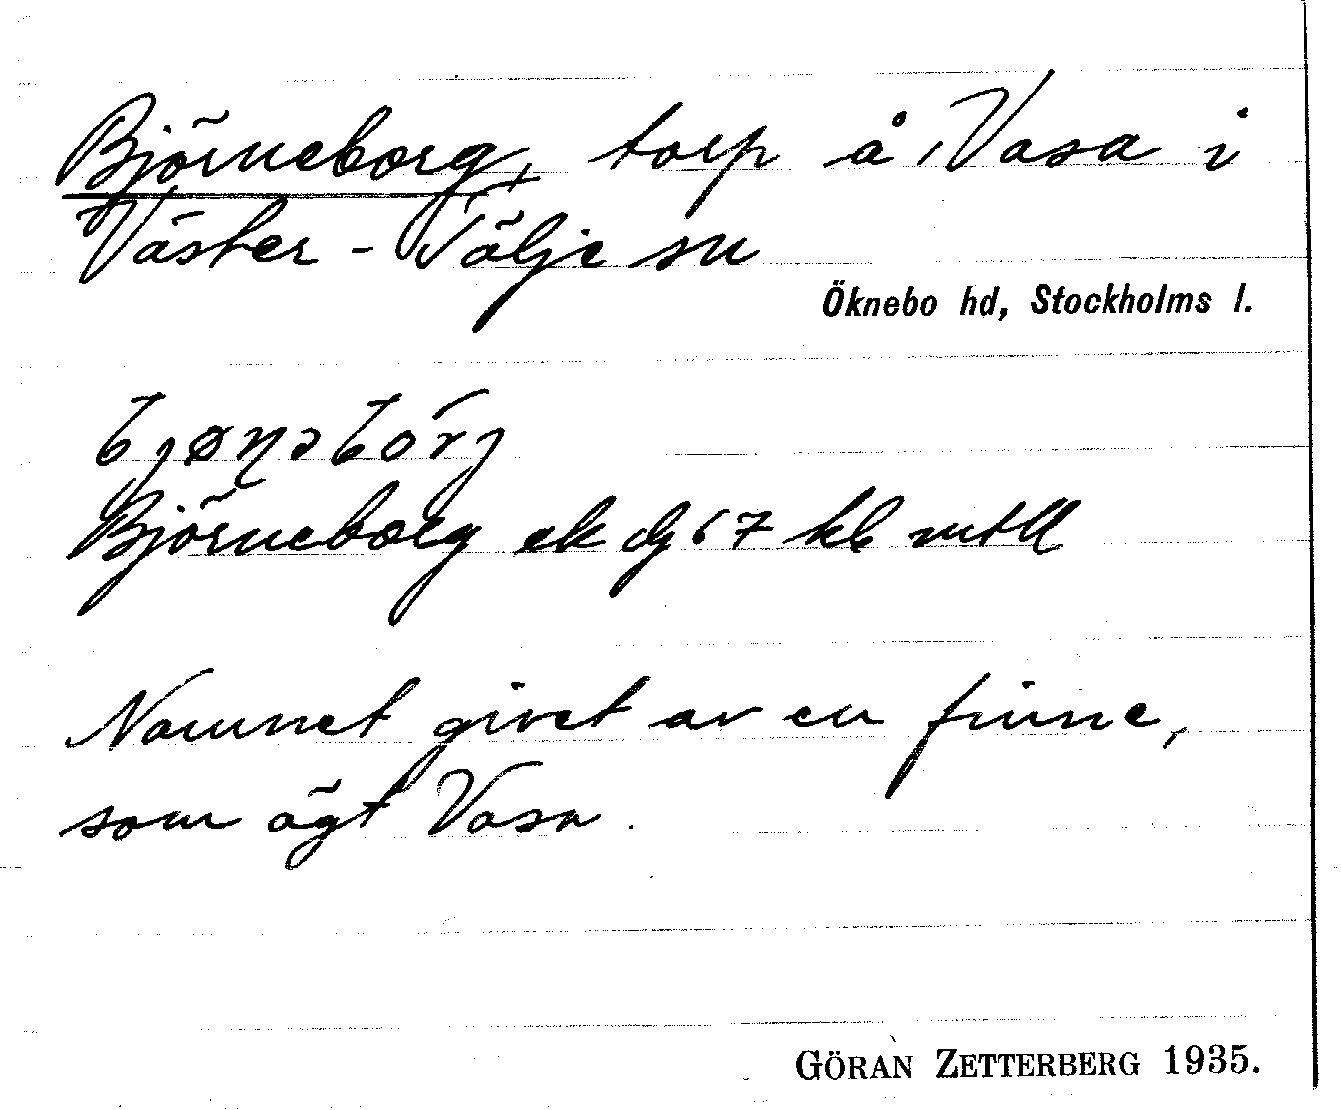 Björneborg, torp å Vasa i
Väster-Tälje sn
Öknebo hd, Stockholms l.
bjønəbórj
Björneborg ek dg 67 kb mtll
Namnet givet av en finne,
som ägt Vasa.
GÖRAN ZETTERBERG 1935.